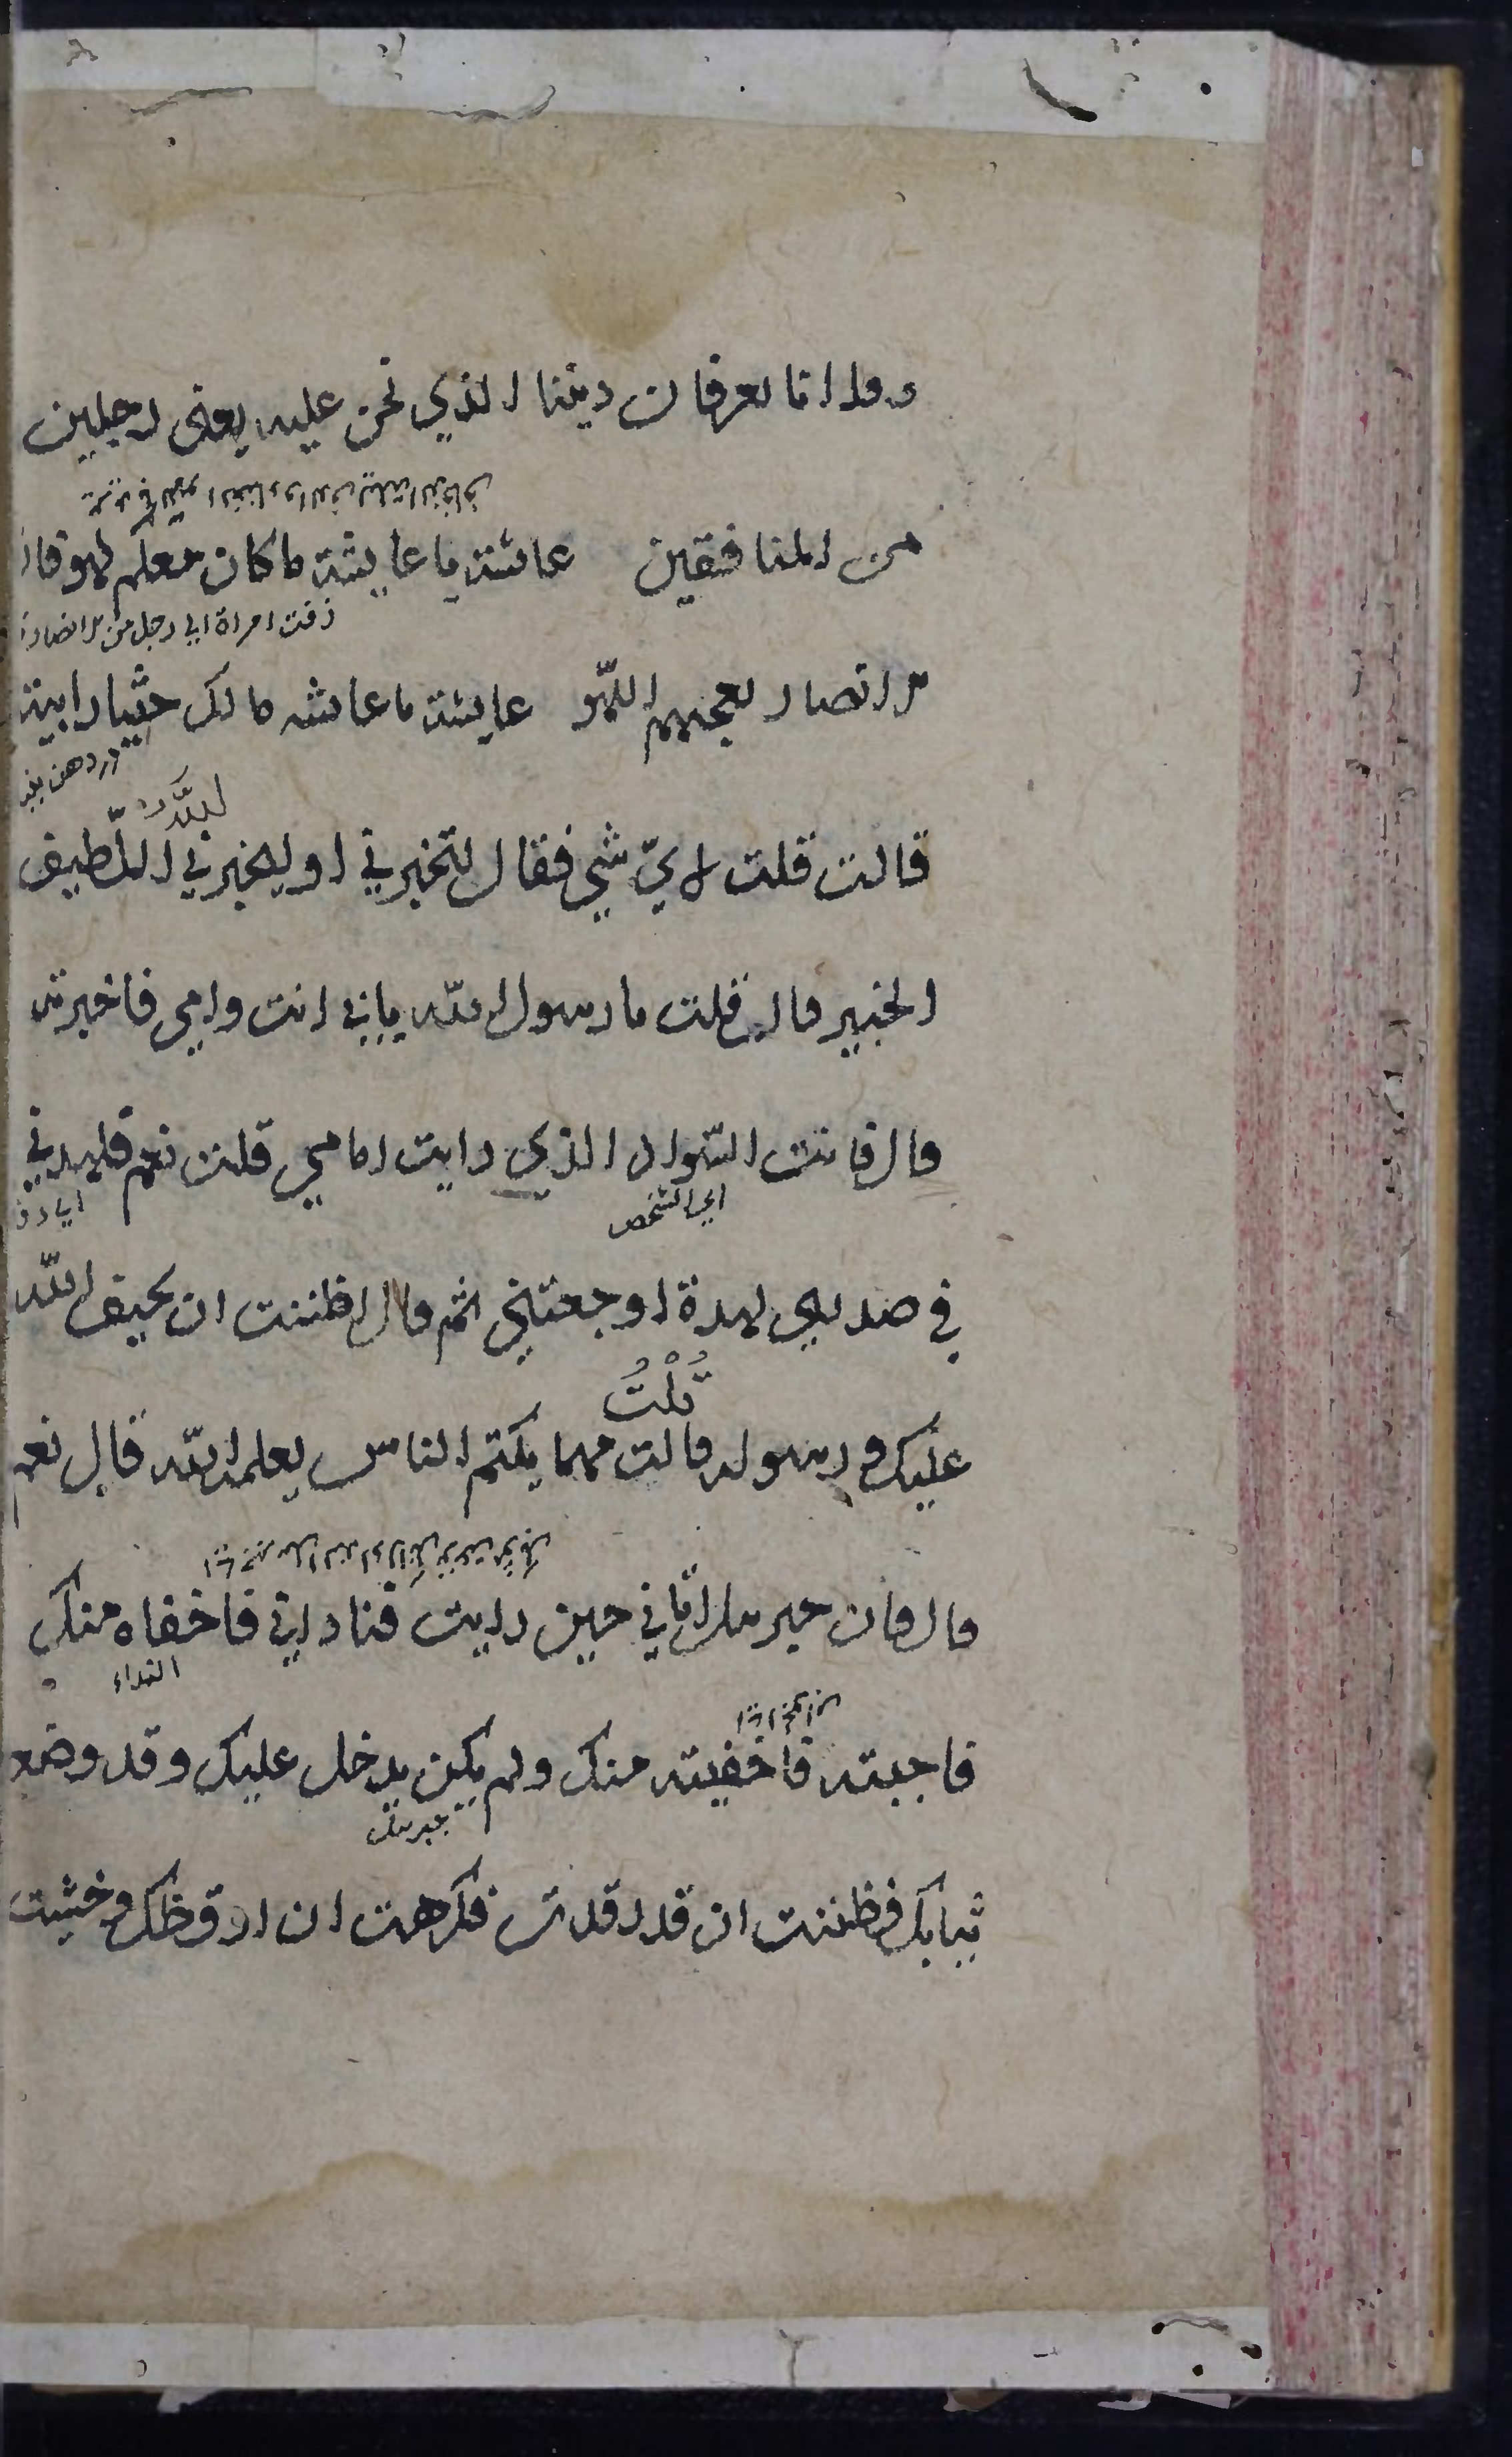 وفلانا يعرفان ديننا الذي نحن عليه يعني رجلين
من المنافقين عائشة يا عايشة ما كان معكم لهو فان
زفت امراة الي رجل من الانصار
الانصار يعجبهم اللهو عايشة يا عايشه ما لك حشيا رابية
قالت قلت لايّ شي فقال لتخبريني او ليخبرني اللّطيف
الخبير قال قلت يا رسول الله بابي انت وامي فاخبرته
قال فانت السّواد الذي رايت امامي قلت نعم فلهدني
اي الشخص
في صدري لهدة اوجعتني ثم قال اظننت ان يحيف الله
عليك ورسوله قالت مهما يكتم الناس يعلمه الله قال نعم
قُلْتُ
قال فان جبريل اتاني حين رايت فناداني فاخفاه منك
النداء
فاجبته فاخفيته منك ولم يكن يدخل عليك وقد وضعت
جبريل
ثيابك فظننت ان قد رقدتِ فكرهت ان اوقظك وخشيت